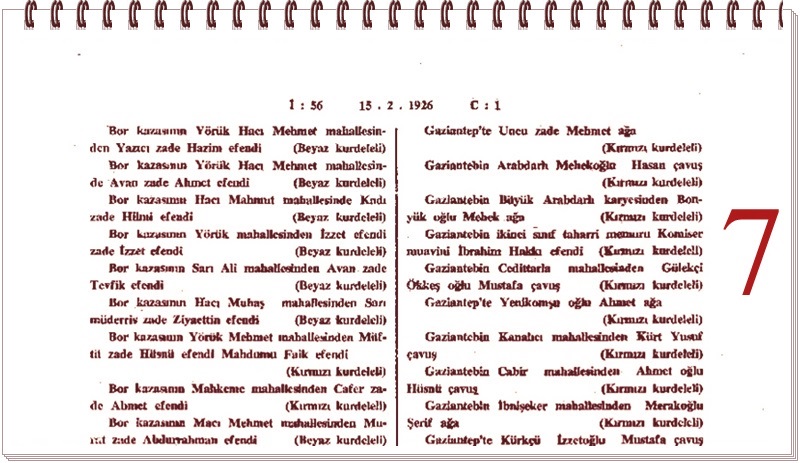 İ : 56 15 . 2 . 1926 C : 1
Bor kazasının Yörük Hacı Mehmet mahallesin-
den Yazıcı zade Hazim efendi (Beyaz kurdeleli)
Bor kazasının Yörük Hacı Mehmet mahallesin-
de Avan zade Ahmet efendi (Beyaz kurdeleli)
Bor kazasının Hacı Mahmut mahallesinde Kadı
zade Hilmi efendi (Beyaz kurdeleli)
Bor kazasının Yörük mahallesinden İzzet efendi
zade İzzet efendi (Beyaz kurdeleli)
Bor kazasının Sarı Ali mahallesinden Avan zade
Tevfik efendi (Beyaz kurdeleli)
Bor kazasının Hacı Muhaş mahallesinden Sarı
müderris zade Ziyaettin efendi (Beyaz kurdeleli)
Bor kazasının Yörük Mehmet mahallesinden Müf-
tü zade Hüsnü efendi Mahdumu Faik efendi
(Kırmızı kurdeleli)
Bor kazasının Mahkeme mahallesinden Cafer za-
de Ahmet efendi (Kırmızı kurdeleli)
Bor kazasının Macı Mehmet mahallesinden Mu-
zade Abdurrahman efendi (Beyaz kurdeleli)
Gaziantep'te Uncu zade Mehmet ağa
(Kırmızı kurdeleli)
Gaziantebin Arabdarlı Mehekoğlu Hasan çavuş
(Kırmızı kurdeleli)
Gaziantebin Büyük Arabdarlı karyesinden Bon-
yük oğlu Mehek ağa (Kırmızı kurdeleli)
Gaziantebin ikinci sınıf taharri memuru Komiser
muavini İbrahim Hakkı efendi (Kırmızı kurdeleli)
Gaziantebin Cedittarla mahallesinden Gülekçi
Ökkeş oğlu Mustafa çavuş (Kırmızı kurdeleli)
Gaziantep'te Yenikomşu oğlu Ahmet ağa
(Kırmızı kurdeleli)
Gaziantebin Kanalıcı mahallesinden Kürt Yusuf
çavuş (Kırmızı kurdeleli)
Gaziantebin Cabir mahallesinden Ahmet oğlu
Hüsnü çavuş (Kırmızı kurdeleli)
Gaziantebin İbnişeker mahallesinden Merakoğlu
Şerif ağa (Kırmızı kurdeleli)
Gaziantep'te Kürkçü İzzetoğlu Mustafa çavuş
7